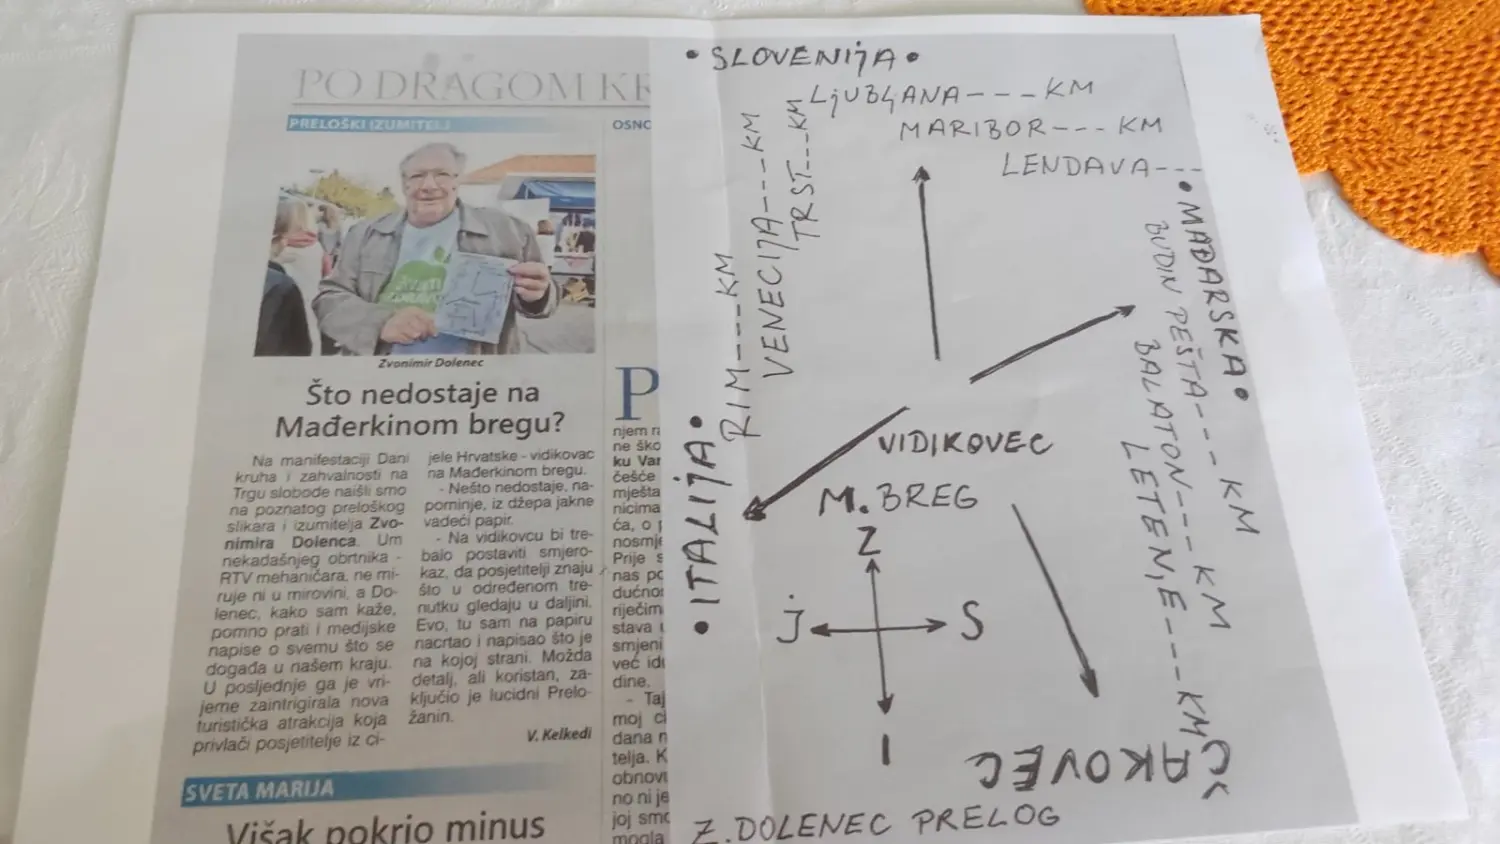 PO DRAGOM KR
PRELOŠKI IZUMITELJ
Zvonimir Dolenec
Što nedostaje na
Mađerkinom bregu?
Na manifestaciji Dani
kruha i zahvalnosti na
Trgu slobode naišli smo
na poznatog preloškog
slikara i izumitelja Zvo-
nimira Dolenca. Um
nekadašnjeg obrtnika -
RTV mehaničara, ne mi-
ruje ni u mirovini, a Do-
lenec, kako sam kaže,
pomno prati i medijske
napise o svemu što se
događa u našem kraju.
U posljednje ga je vri-
jeme zaintrigirala nova
turistička atrakcija koja
privlači posjetitelje iz ci-
jele Hrvatske - vidikovac
na Mađerkinom bregu.
- Nešto nedostaje, na-
pominje, iz džepa jakne
vadeći papir.
- Na vidikovcu bi tre-
balo postaviti smjero-
kaz, da posjetitelji znaju
što u određenom tre-
nutku gledaju u daljini.
Evo, tu sam na papiru
nacrtao i napisao što je
na kojoj strani. Možda
detalj, ali koristan, za-
ključio je lucidni Prelo-
žanin.
V. Kelkedi
SVETA MARIJA
Višak pokrio minus
OSNO
P
njem r
ne ško
ku Var
češće
mješta
nicima
ća, o
nosmje
Prije s
nas po
dućno
riječim
stava
smjeni
već idu
dine.
- Taj
moj cl
dana n
telja. K
obnovi
no ni je
joj smo
mogla
• SLOVENIJA •
LJUBLJANA --- KM
MARIBOR --- KM
LENDAVA ---
• MAĐARSKA •
BUDIN PEŠTA --- KM
BALATON --- KM
LETENIJE --- KM
TRST --- KM
VENECIJA --- KM
RIM --- KM
• ITALIJA •
VIDIKOVEC
M. BREG
Z
J S
I
ČAKOVEC
Z. DOLENEC PRELOG